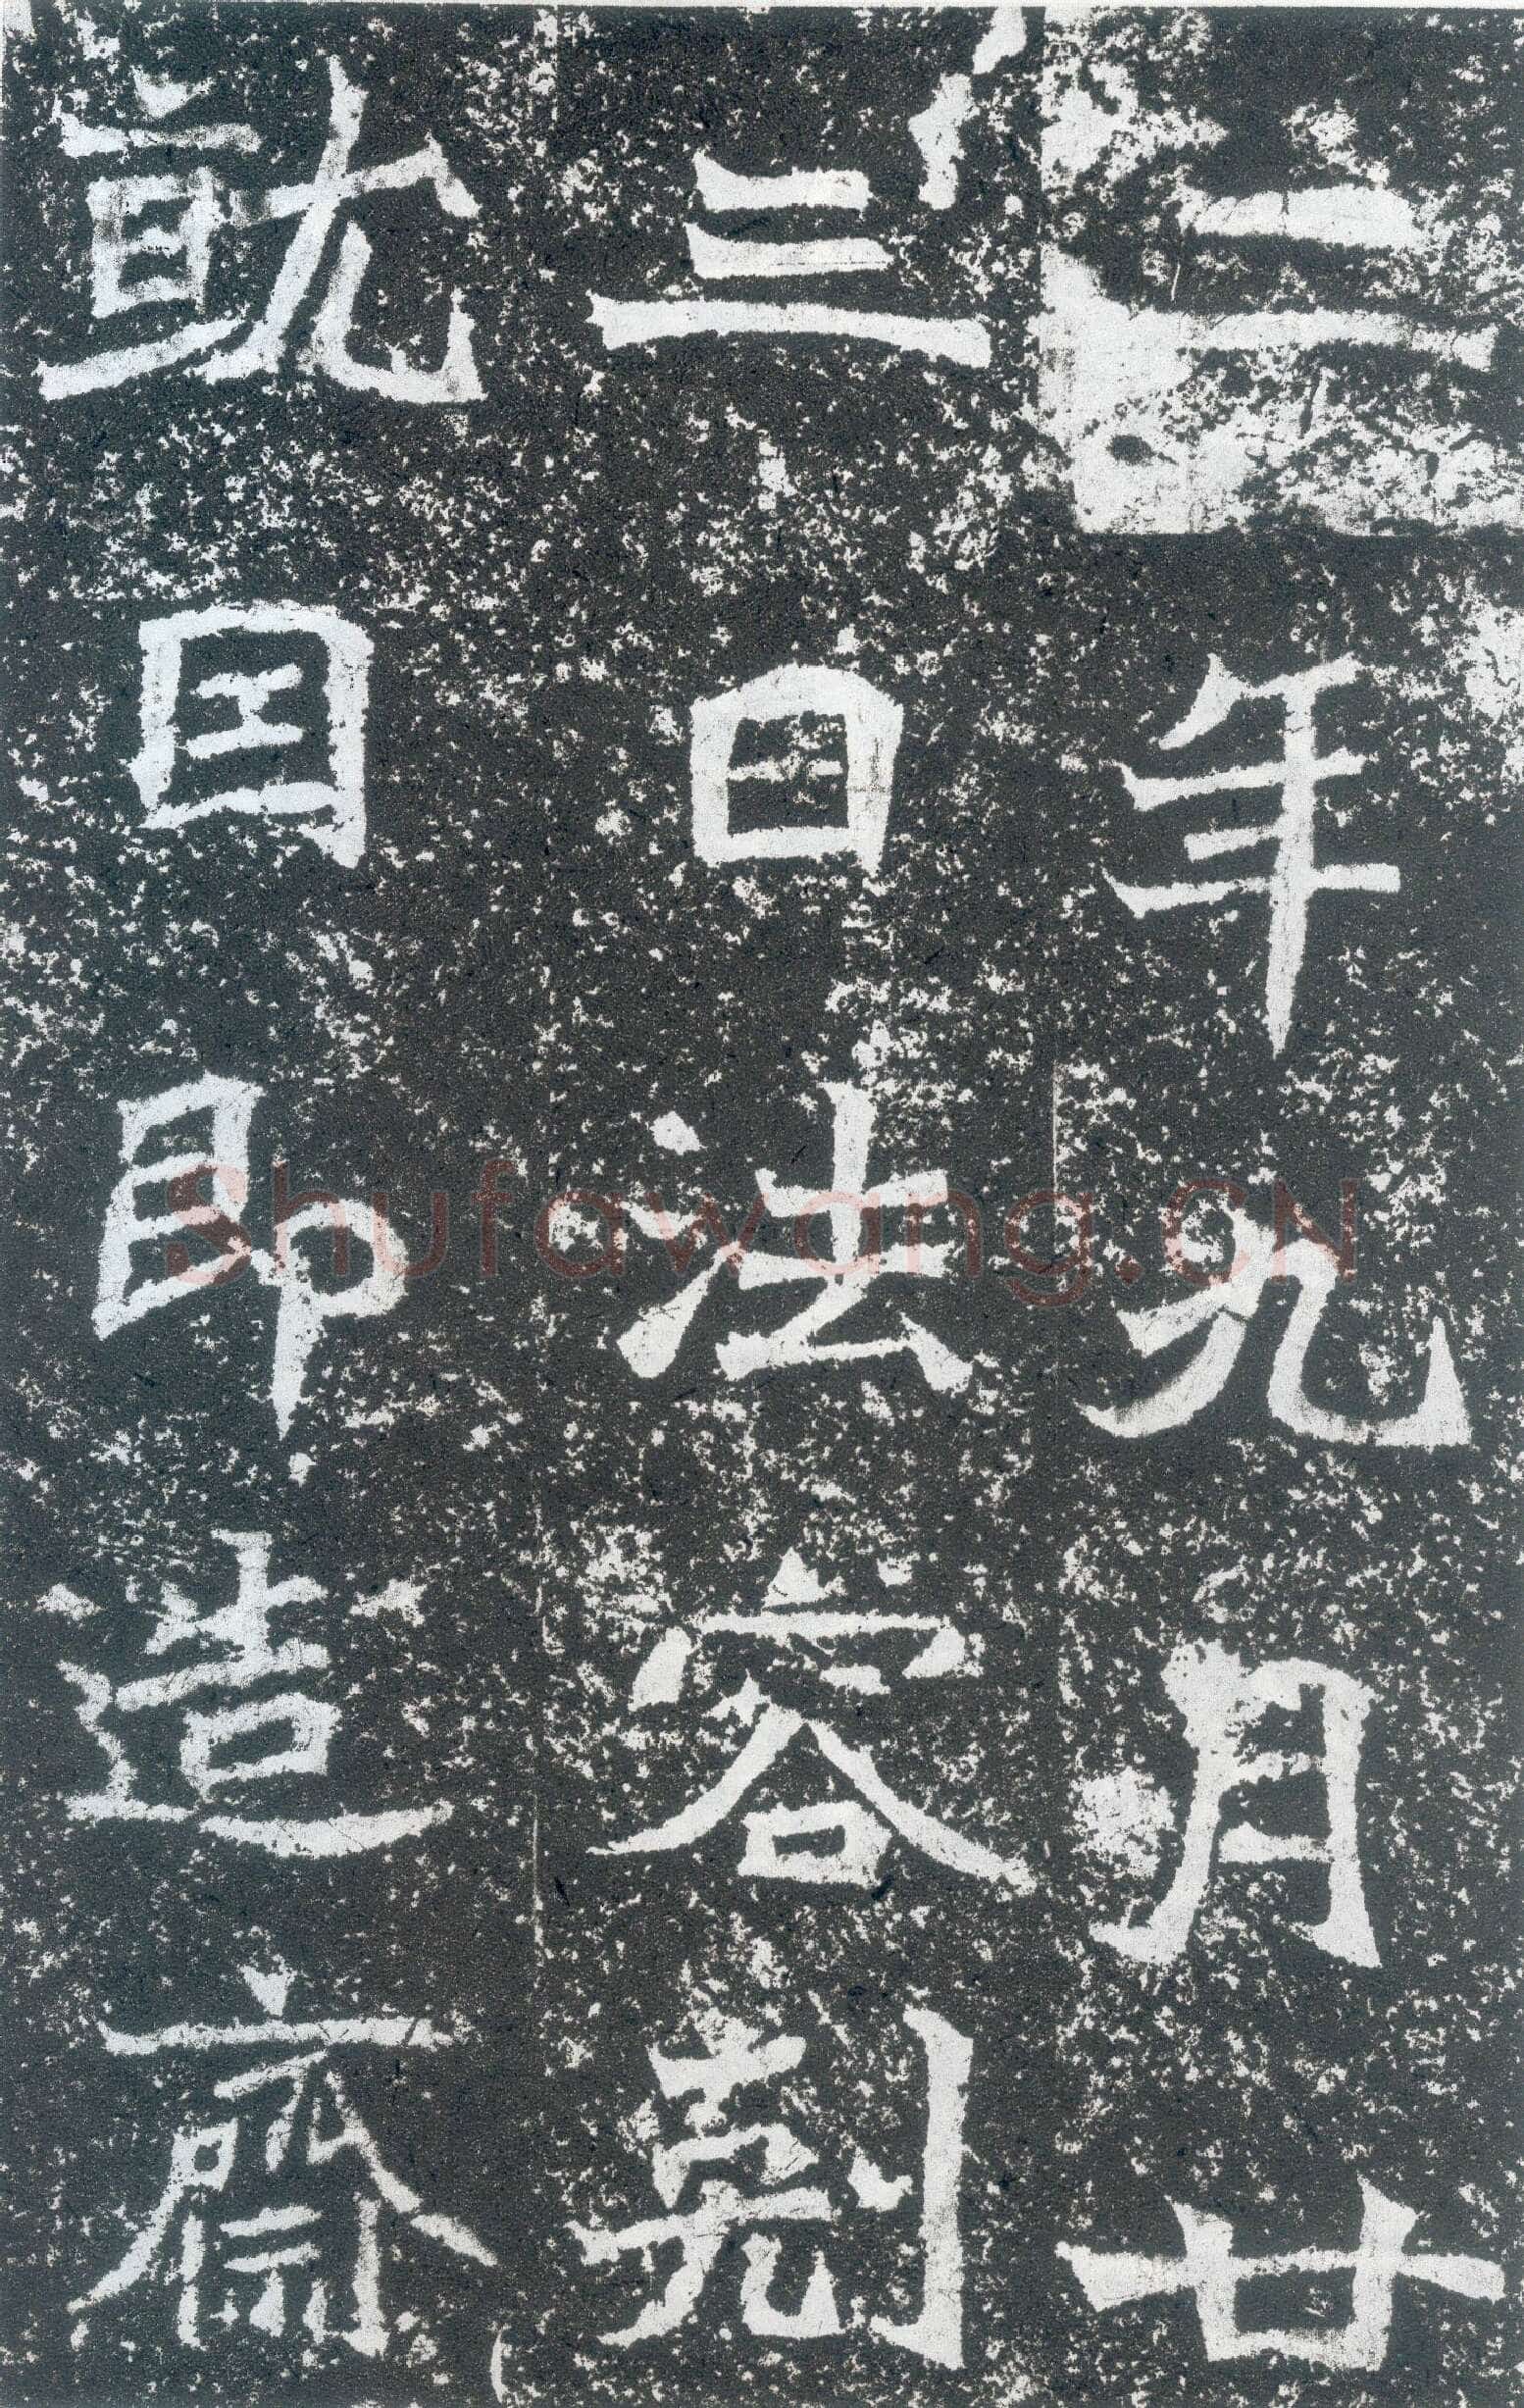 二年九月廿
三日法容刻
就因即造齋
Shufawang.CN